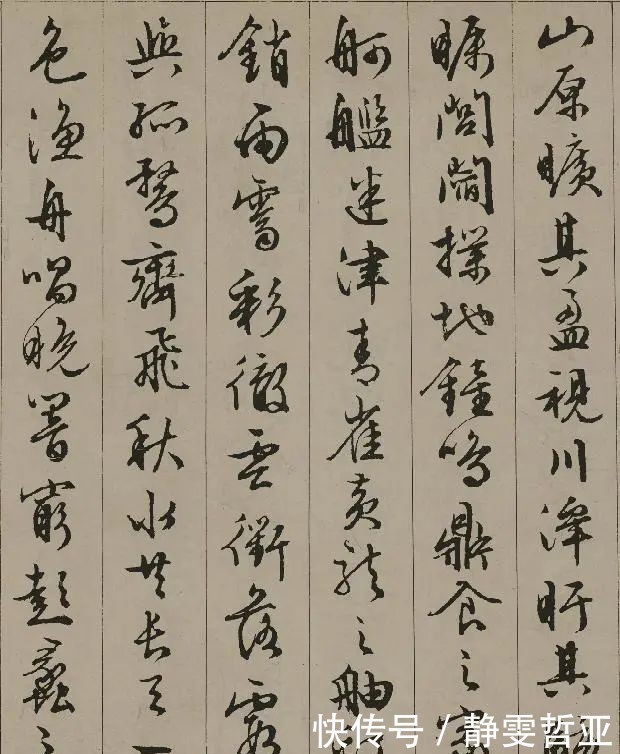 山原曠其盈視川澤盱其
矚閭閻撲地鐘鳴鼎食之家
舸艦迷津青雀黃龍之舳
銷雨霽彩徹雲衢落霞
與孤鶩齊飛秋水共長天一
色漁舟唱晚響窮彭蠡之
快传号 / 静雯哲亚